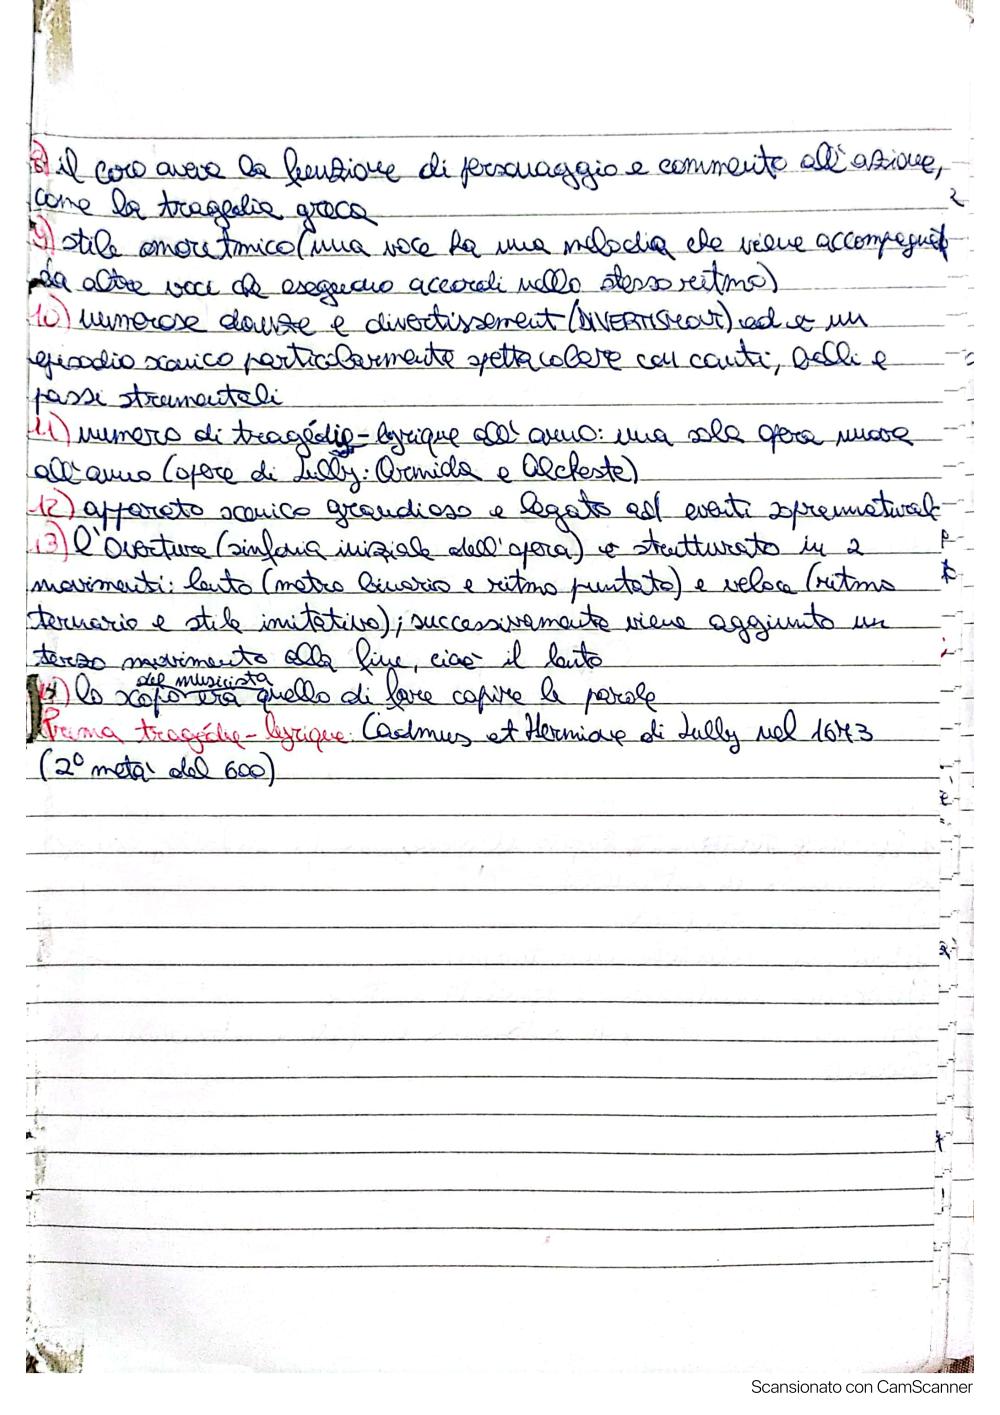 8) il coro aveva la funzione di personaggio e commento all'azione,
come la tragedia greca
9) stile omoritmico (una voce ha una melodia che viene accompagnat
da altre voci che eseguono accordi nello stesso ritmo)
10) numerose danze e divertissement (DIVERTISMOUT) ed è un
episodio scenico particolarmente spettacolare con canti, balli e
passi strumentali
11) numero di tragédie-lyrique all'anno: una sola opera nuova
all'anno (opere di Lully: Armida e Alcheste)
12) apparato scenico grandioso e legato ad eventi soprannaturali
13) l'Overture (sinfonia iniziale dell'opera) è strutturato in 2
movimenti: lento (metro binario e ritmo puntato) e veloce (ritmo
ternario e stile imitativo); successivamente viene aggiunto un
terzo movimento alla fine, cioè il lento
del musicista
14) lo scopo era quello di fare capire le parole
Prima tragédie-lyrique: Cadmus et Hermione di Lully nel 1673
(2° metà del 600)
Scansionato con CamScanner